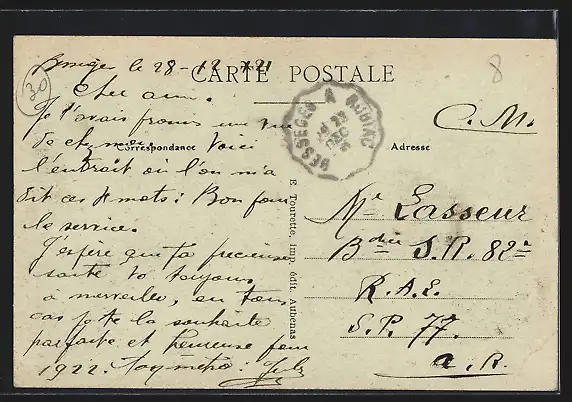 le 28-12-21
CARTE POSTALE
30
8
Cher ami.
BESSEGES A ROBIAC
28
DEC
C. M.
Je t'avais promis une vue
de chez moi. Voici
Correspondance
Adresse
l'endroit où l'on m'a
dit ces mots : Bon pour
le service.
J'espère que ta précieuse
santé va toujours
à merveille, en tous
cas je te la souhaite
parfaite et heureuse pour
1922.
E. Tourette, imp. édit. Aubenas
Mr Lasseur
Bdier S.P. 82e
R.A.L.
S.P. 77.
a. R.